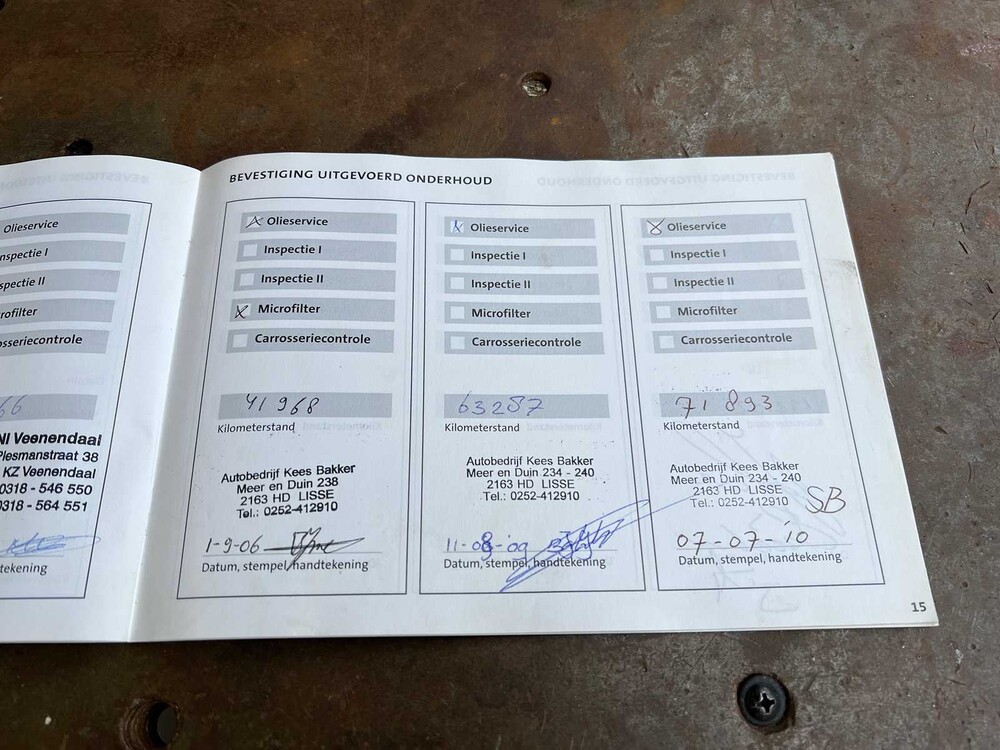 BEVESTIGING UITGEVOERD ONDERHOUD
Olieservice
nspectie I
spectie II
rofilter
osseriecontrole
66
NI Veenendaal
Plesmanstraat 38
KZ Veenendaal
0318 - 546 550
0318 - 564 551
tekening
Olieservice
Inspectie I
Inspectie II
Microfilter
Carrosseriecontrole
41 968
Kilometerstand
Autobedrijf Kees Bakker
Meer en Duin 238
2163 HD LISSE
Tel.: 0252-412910
1-9-06
Datum, stempel, handtekening
Olieservice
Inspectie I
Inspectie II
Microfilter
Carrosseriecontrole
63287
Kilometerstand
Autobedrijf Kees Bakker
Meer en Duin 234 - 240
2163 HD LISSE
Tel.: 0252-412910
11-08-09
Datum, stempel, handtekening
Olieservice
Inspectie I
Inspectie II
Microfilter
Carrosseriecontrole
71 893
Kilometerstand
Autobedrijf Kees Bakker
Meer en Duin 234 - 240
2163 HD LISSE
Tel.: 0252-412910
SB
07-07-10
Datum, stempel, handtekening
15